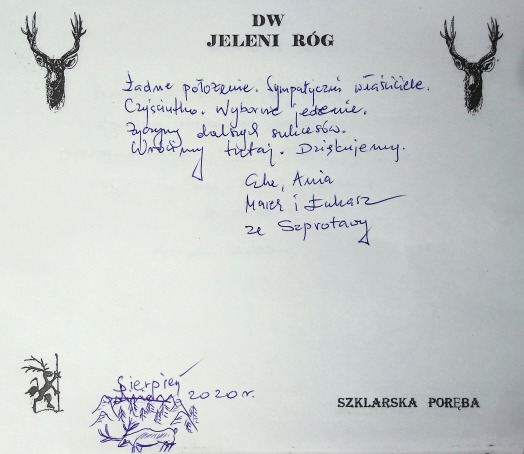 DW
JELENI RÓG
Ładne położenie. Sympatyczni właściciele.
Czyściutko. Wyborne jedzenie.
Życzymy dalszych sukcesów.
Wrócimy tutaj. Dziękujemy.
Ania
Marek i Łukasz
ze Szprotawy
Sierpień 2020 r.
SZKLARSKA PORĘBA